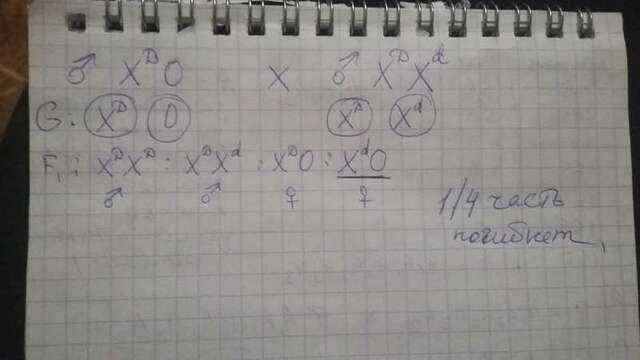 ♂ XᴰO x ♂ XᴰXᵈ
G: Xᴰ O Xᴰ Xᵈ
F₁: XᴰXᴰ : XᴰXᵈ : XᴰO : XᵈO
♂ ♂ ♀ ♀
1/4 часть
погибнет,